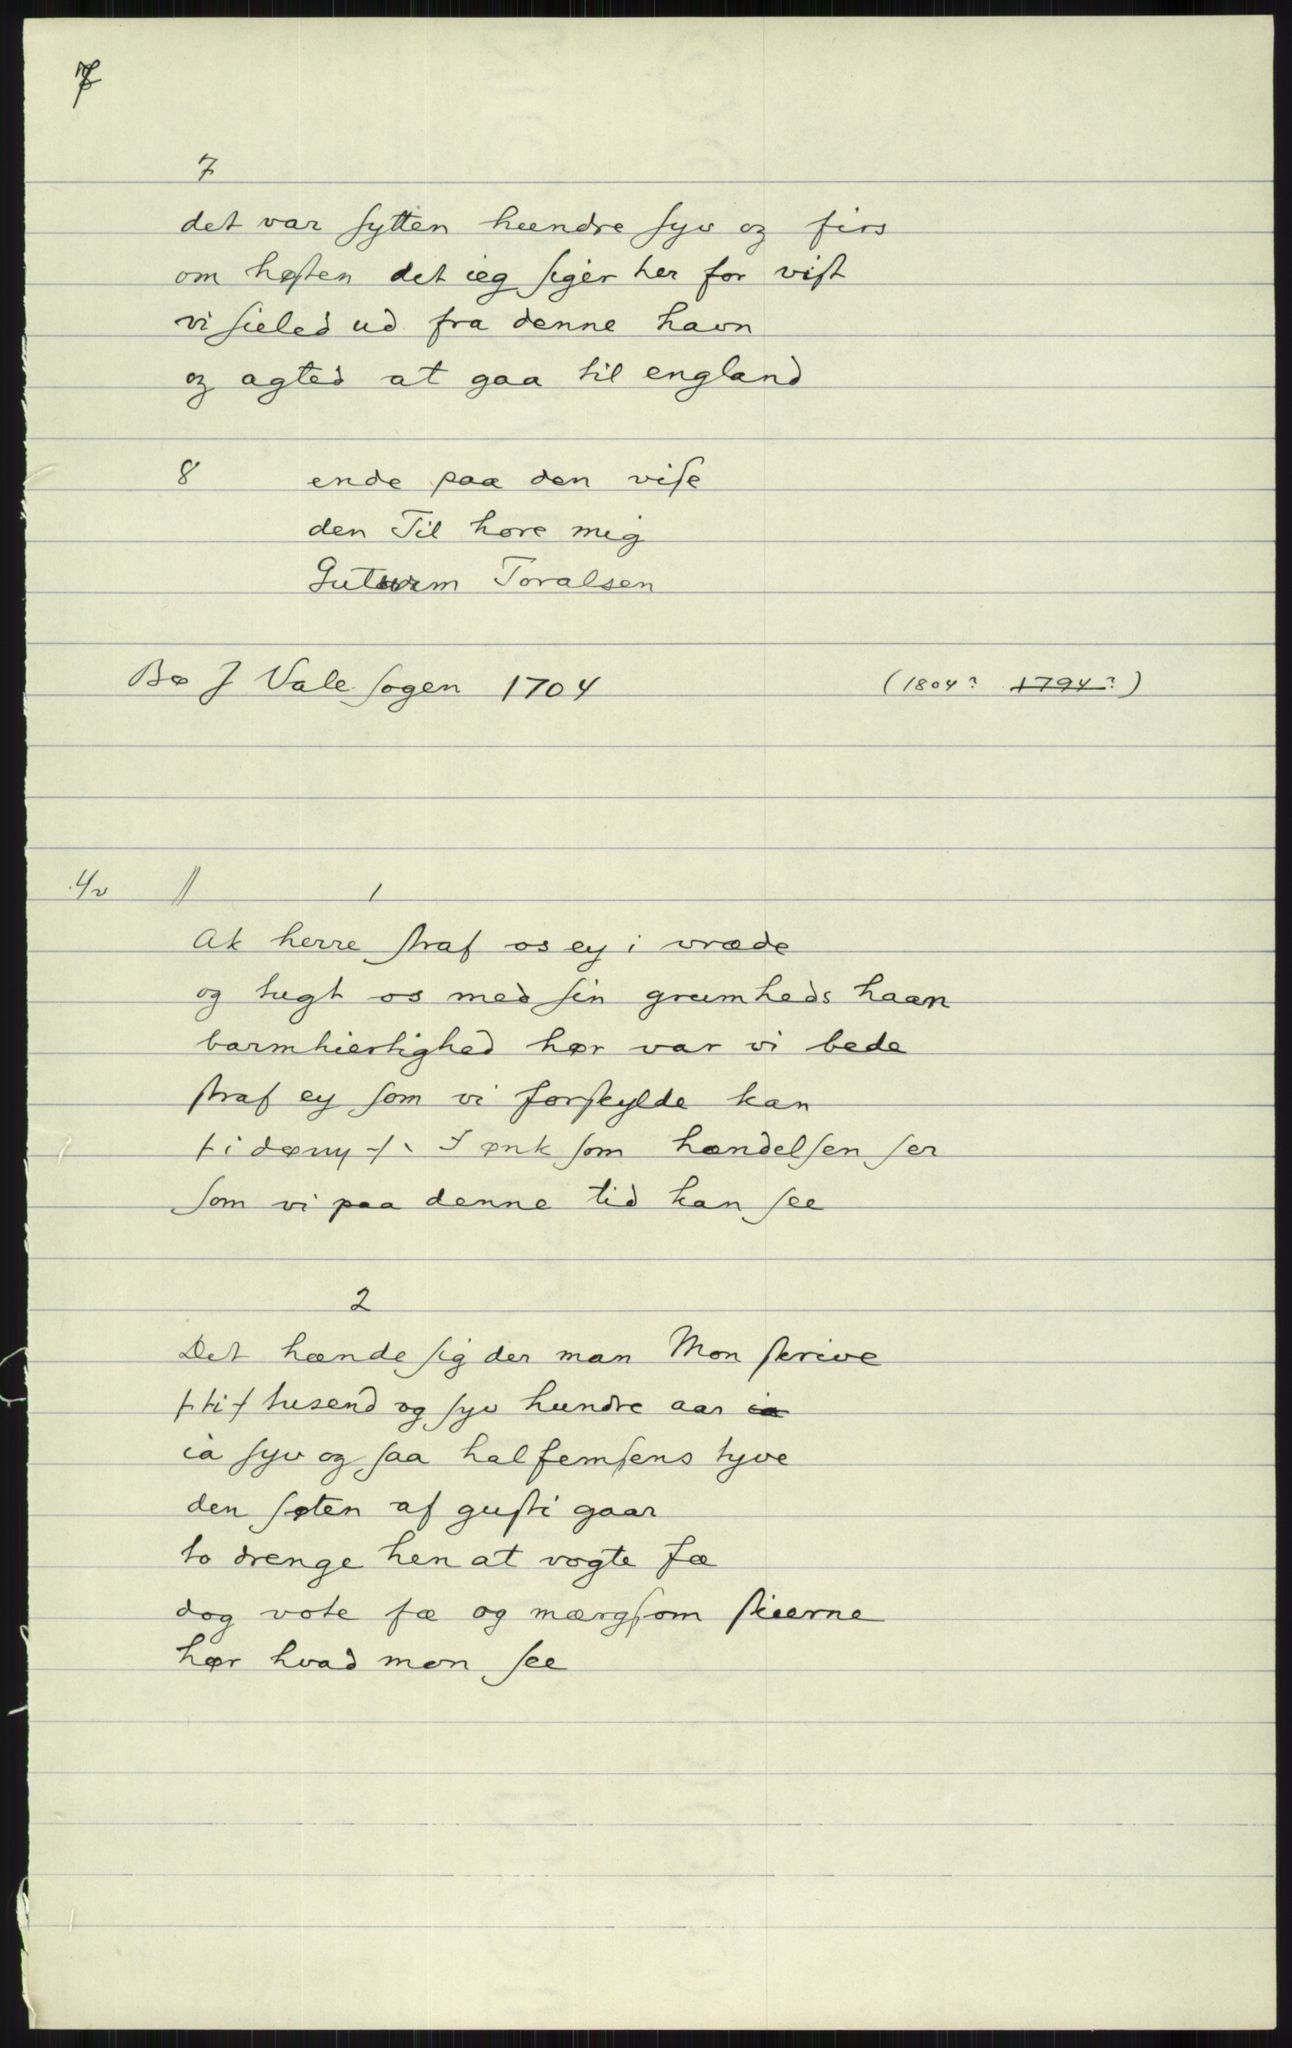 7
7
det var sytten hundre syv og firs
om høsten det ieg siger her for vist
vi sieled ud fra denne havn
og agted at gaa til england
8 ende paa den vise
den Til høre mig
Guturm Toralsen
Bø J Vale sogen 1704 (1804? 1794?)
4v // 1
Ak herre straf os ey i vræde
og tugt os med sin grumheds haan
barmhiertighed hør var vi bede
straf ey som vi forskylde kan
som hændelsen ser
som vi paa denne tid kan see
2
Det hænde sig der man Mon skrive
+ ti + tusend og syv hundre aar ia
ia syv og saa halfemsens tyve
den søten af gusti gaar
to drenge hen at vogte fæ
dog vote fæ og mærgsom skierne
hør hvad mon see